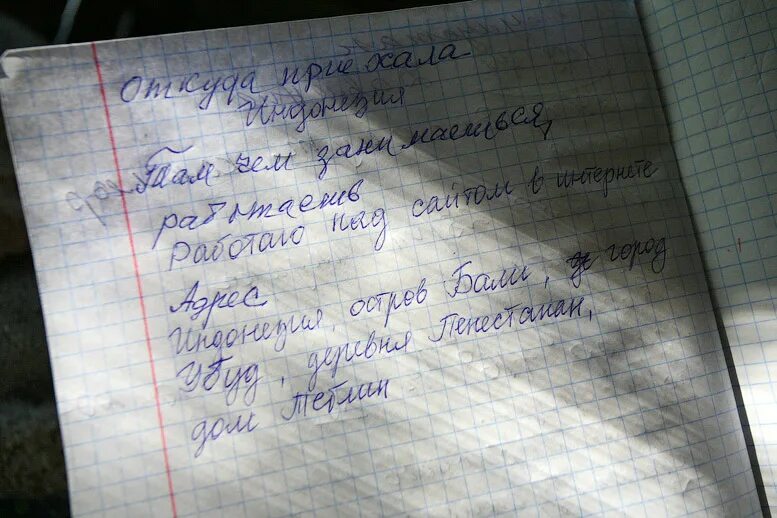 откуда приехала
Индонезия
Там чем занимаешься,
работаешь
Работаю над сайтом в интернете
Адрес
Индонезия, остров Бали, город
Убуд, деревня Пенестанан,
дом Теблин